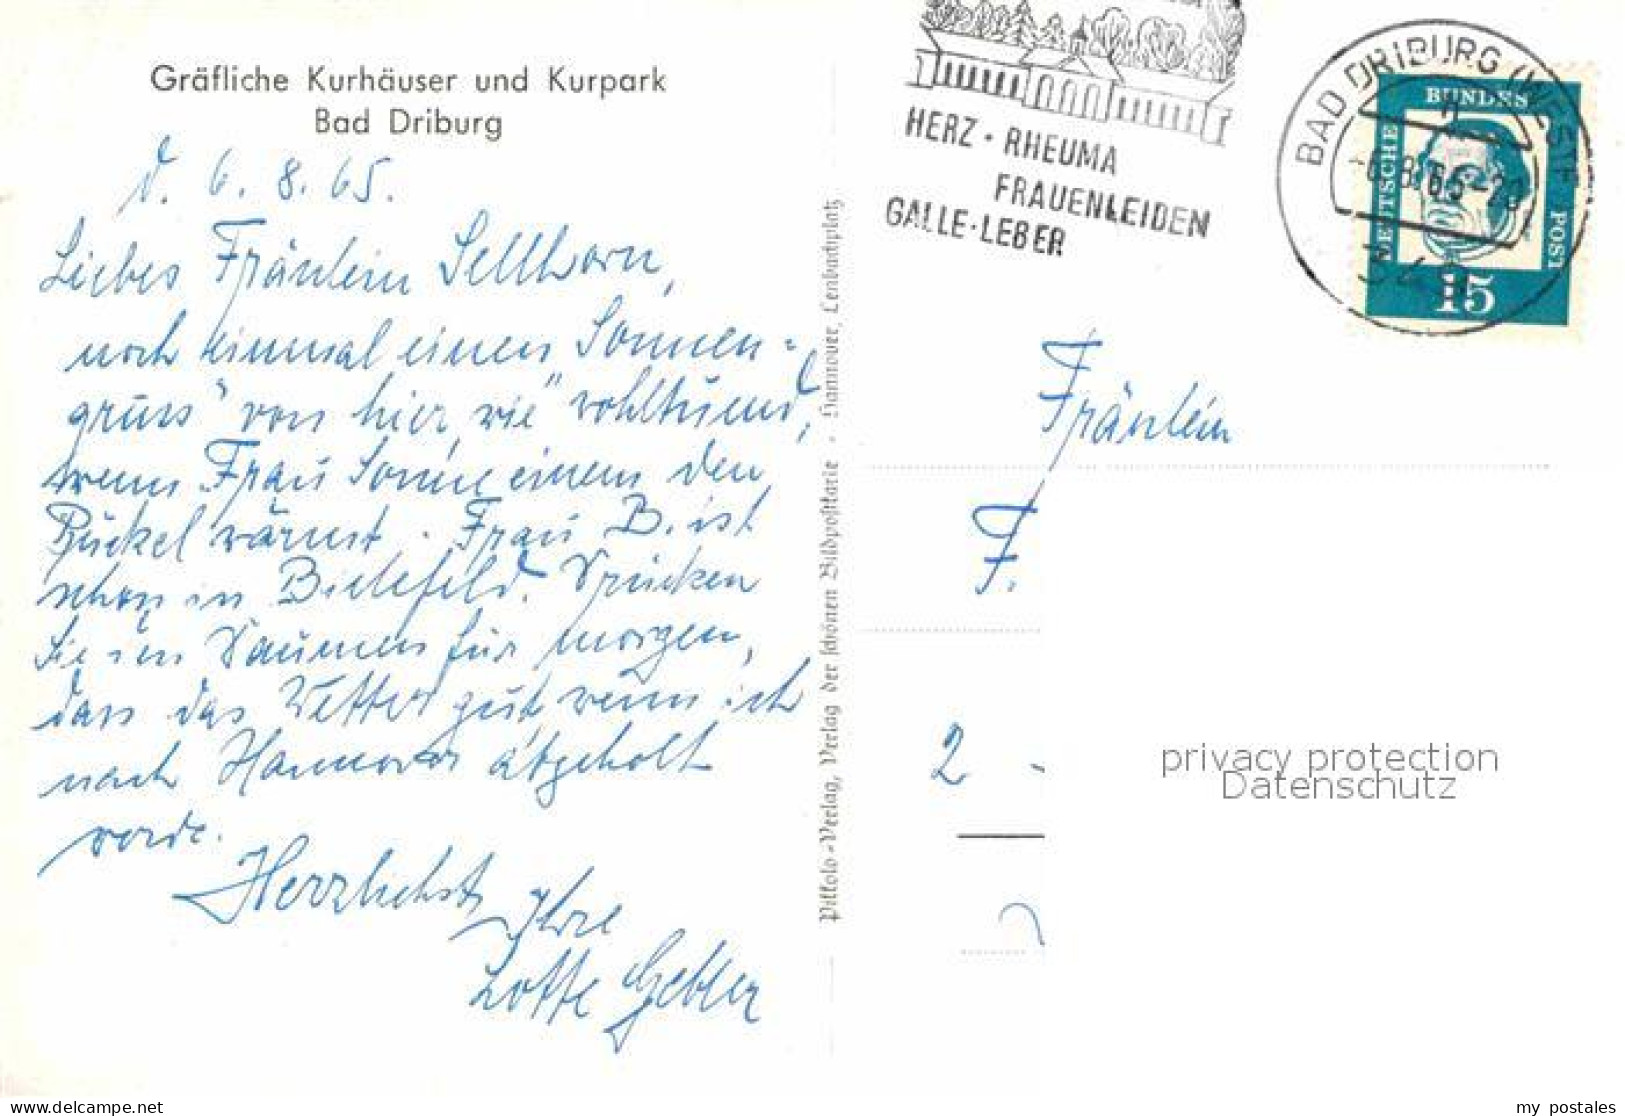 Gräfliche Kurhäuser und Kurpark
Bad Driburg
d. 6. 8. 65.
Liebes Fräulein Sellhorn,
noch einmal einen „Sonnen=
gruss" von hier, wie wohltuend,
wenn Frau Sonne einem den
Buckel wärmt. Frau B. ist
schon in Bielefeld. Drücken
Sie den Daumen für morgen,
dass das Wetter gut wenn ich
nach Hannover abgeholt
werde.
Herzlichst Ihre
Lotte Gebler
Pikkolo-Verlag, Verlag der schönen Bildpostkarte · Hannover, Lenbachplatz
HERZ · RHEUMA
FRAUENLEIDEN
GALLE · LEBER
BAD DRIBURG (WESTF
-6.8.65-20
DEUTSCHE
BUNDES
POST
15
Fräulein
F.
2 -
privacy protection
Datenschutz
delcampe.net
my_postales